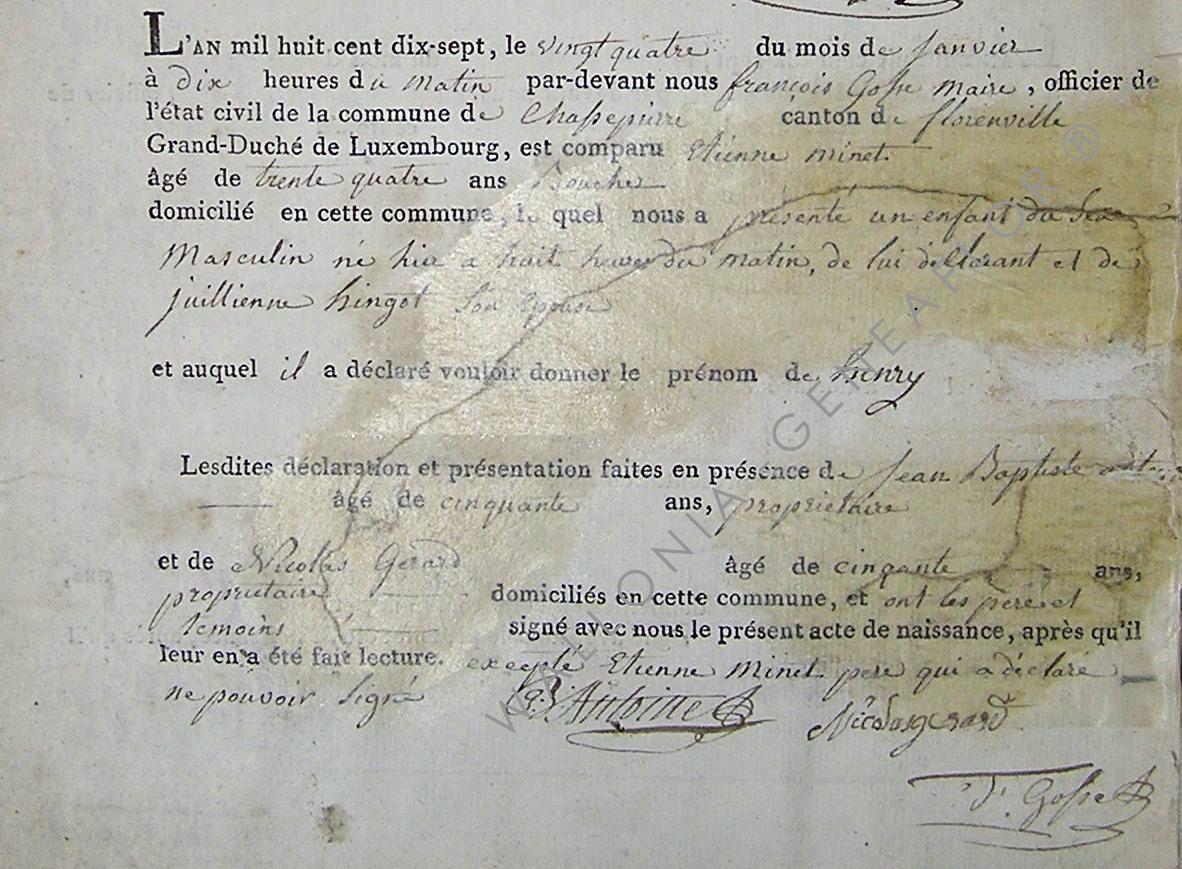 L'AN mil huit cent dix-sept, le vingt quatre du mois de janvier
à dix heures du matin par-devant nous françois Gosse maire, officier de
l'état civil de la commune de Chassepierre canton de florenville
Grand-Duché de Luxembourg, est comparu Etienne minet
âgé de trente quatre ans Boucher
domicilié en cette commune, le quel nous a présente un enfant du Sexe
Masculin né hier a huit heures du matin, de lui déclarant et de
juillienne hingot Son Epouse
et auquel il a déclaré vouloir donner le prénom de henry
Lesdites déclaration et présentation faites en présence de jean Baptiste
âgé de cinquante ans, propriétaire
et de Nicolas Gerard âgé de cinqante ans,
propriétaire domiciliés en cette commune, et ont les père et
temoins signé avec nous le présent acte de naissance, après qu'il
leur en a été fait lecture. excepté Etienne minet pere qui a déclaré
ne pouvoir signé JB Antoine Nicolas gerard
f. Gosse
WALLONIA GENEAFOR ®